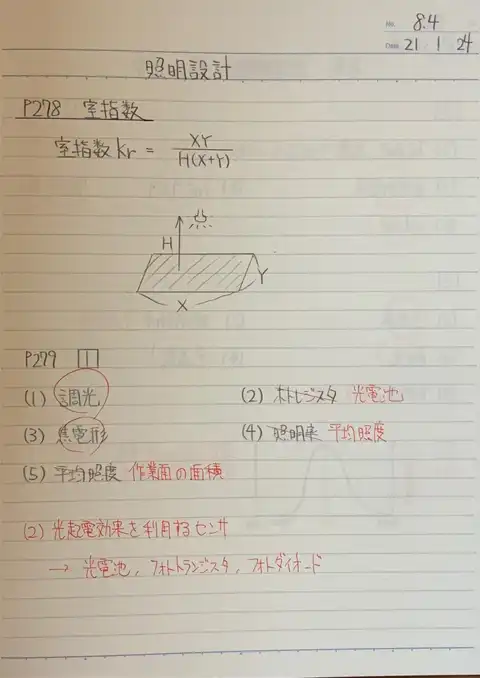 No. 8.4
Date 21 1 24
照明設計
P278 室指数
室指数 kr = XY / H(X+Y)
点
H
Y
X
P279 1
(1) 調光 (2) ホトレジスタ 光電池
(3) 焦電形 (4) 照明率 平均照度
(5) 平均照度 作業面の面積
(2) 光起電効果を利用するセンサ
→ 光電池, フォトトランジスタ, フォトダイオード